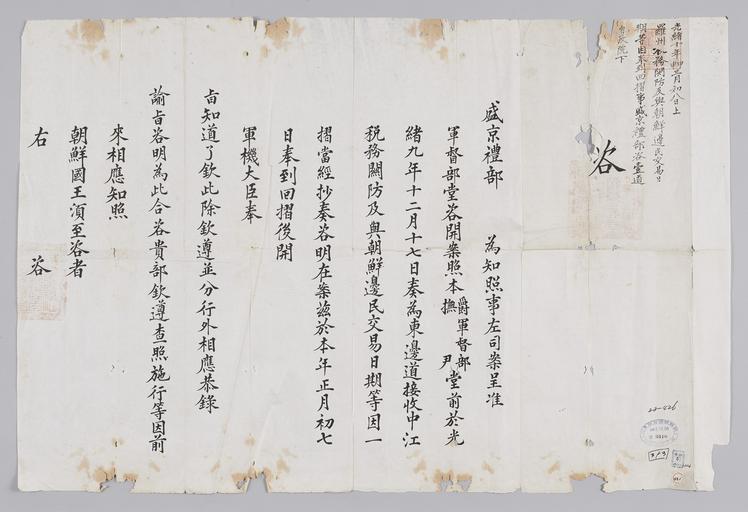 光緒十年 三月初八日上
稅務關防及與朝鮮邊民交易日
期等因奉到回摺事盛京禮部咨壹道
議政院下
咨
盛京禮部　為知照事左司案呈准
軍督部堂咨開案照本爵撫軍督部尹堂前於光
緒九年十二月十七日奏為東邊道接收中江
稅務關防及與朝鮮邊民交易日期等因一
摺當經抄奏咨明在案茲於本年正月初七
日奉到回摺後開
軍機大臣奉
旨知道了欽此除欽遵並分行外相應恭錄
諭旨咨明為此合咨貴部欽遵查照施行等因前
來相應知照
朝鮮國王須至咨者
右　咨
22-426
313